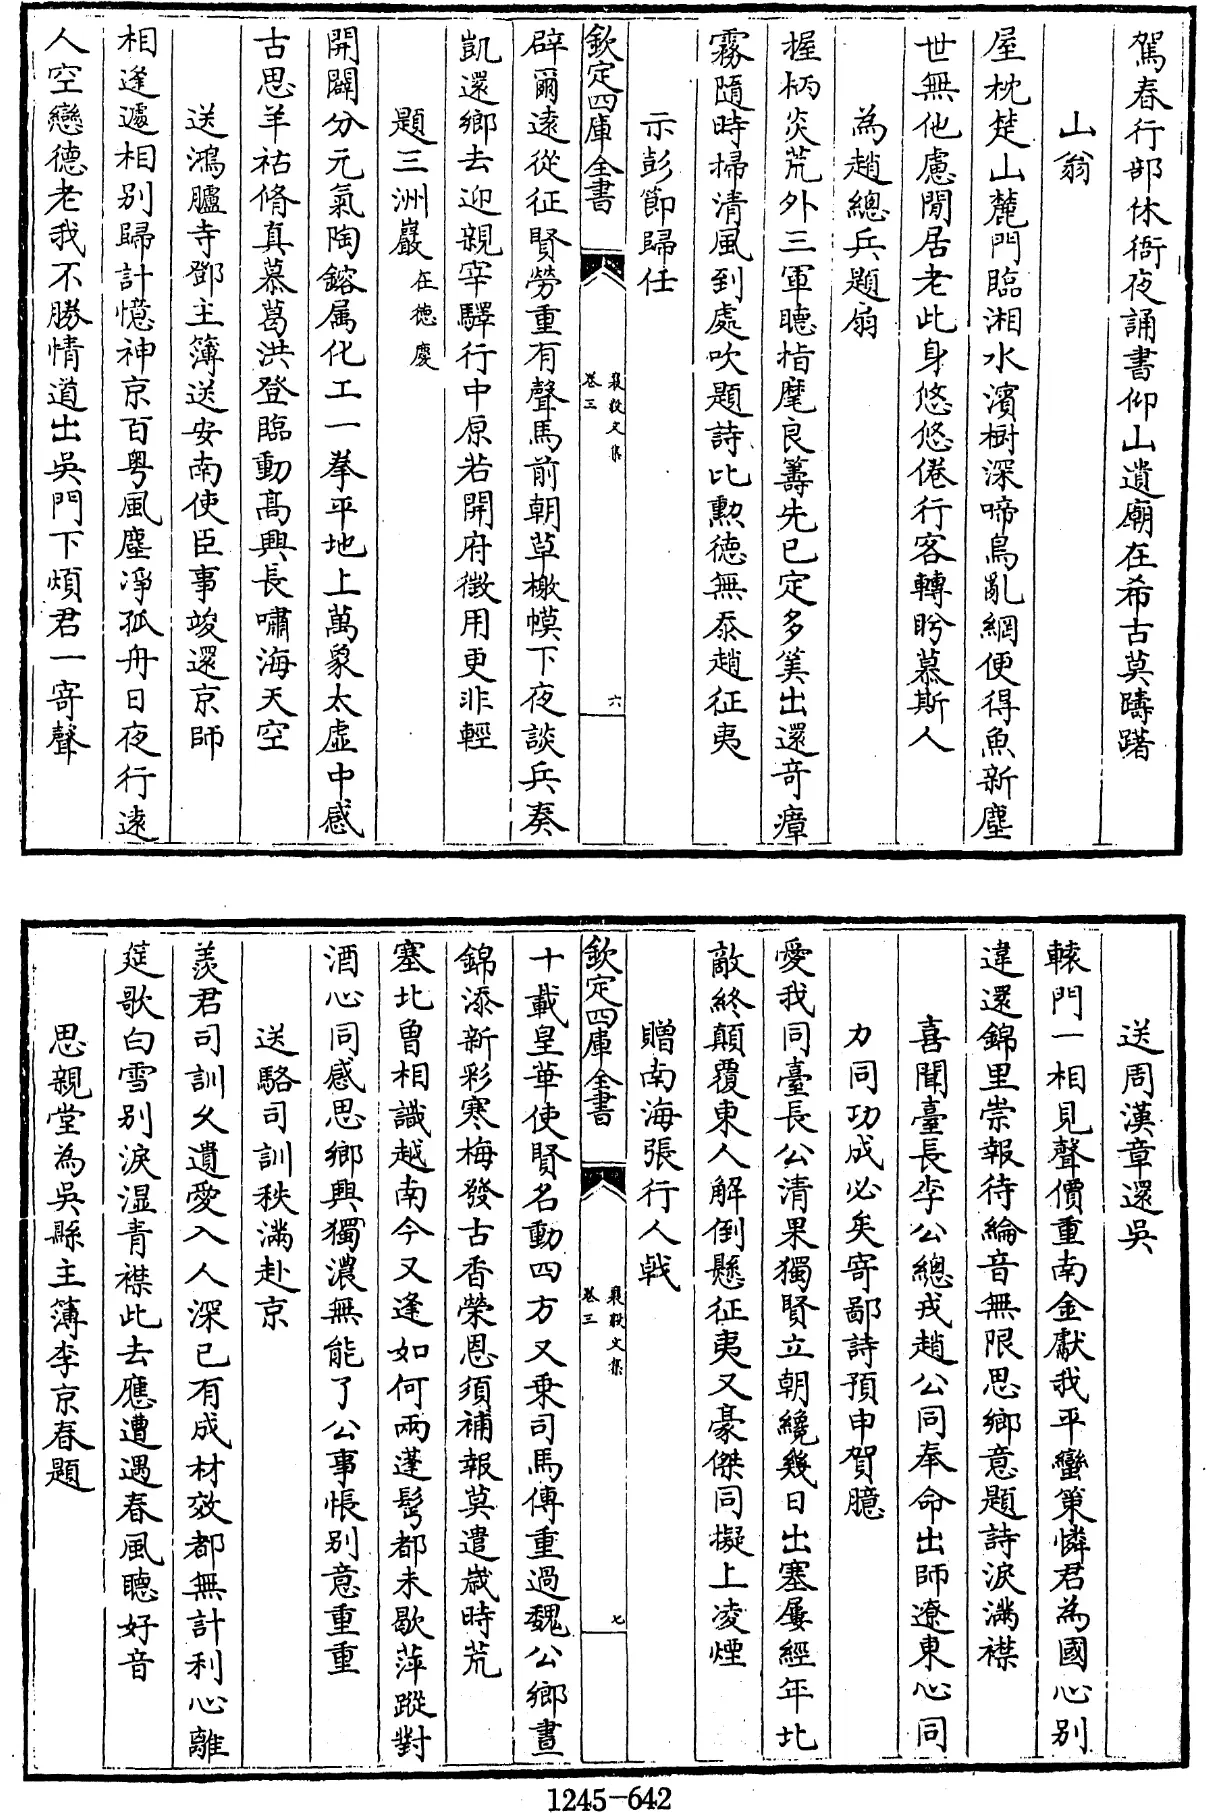 駕春行部休衙夜誦書仰山遺廟在希古莫躊躇
山翁
屋枕楚山麓門臨湘水濱樹深啼鳥亂網便得魚新塵
世無他慮閒居老此身悠悠倦行客轉盻慕斯人
為趙總兵題扇
握柄炎荒外三軍聴指麾良籌先已定多筭出還奇瘴
霧隨時掃清風到處吹題詩比勲徳無忝趙征夷
示彭節歸任
欽定四庫全書
襄毅文集
卷三
六
辟爾逺從征賢勞重有聲馬前朝草檄幙下夜談兵奏
凱還鄉去迎親宰驛行中原若開府徴用更非輕
題三洲巖在徳慶
開闢分元氣陶鎔属化工一拳平地上萬象太虚中感
古思羊祜脩真慕葛洪登臨動髙興長嘯海天空
送鴻臚寺鄧主簿送安南使臣事竣還京師
相逢遽相别歸計憶神京百粤風塵淨孤舟日夜行逺
人空戀徳老我不勝情道出吳門下煩君一寄聲
送周漢章還吳
轅門一相見聲價重南金獻我平蠻策憐君為國心别
違還錦里崇報待綸音無限思鄉意題詩淚滿襟
喜聞臺長李公總戎趙公同奉命出師遼東心同
力同功成必矣寄鄙詩預申賀臆
愛我同臺長公清果獨賢立朝纔幾日出塞屢經年北
敵終顛覆東人解倒懸征夷又豪傑同擬上凌煙
贈南海張行人戟
欽定四庫全書
襄毅文集
卷三
七
十載皇華使賢名動四方又乗司馬傳重過魏公鄉晝
錦添新彩寒梅發古香榮恩須補報莫遣歳時荒
塞北曽相識越南今又逢如何兩蓬髩都未歇萍蹤對
酒心同感思鄉興獨濃無能了公事悵别意重重
送駱司訓秩滿赴京
羨君司訓乆遺愛入人深已有成材效都無計利心離
筵歌白雪别淚湿青襟此去應遭遇春風聴好音
思親堂為吳縣主簿李京春題
1245-642